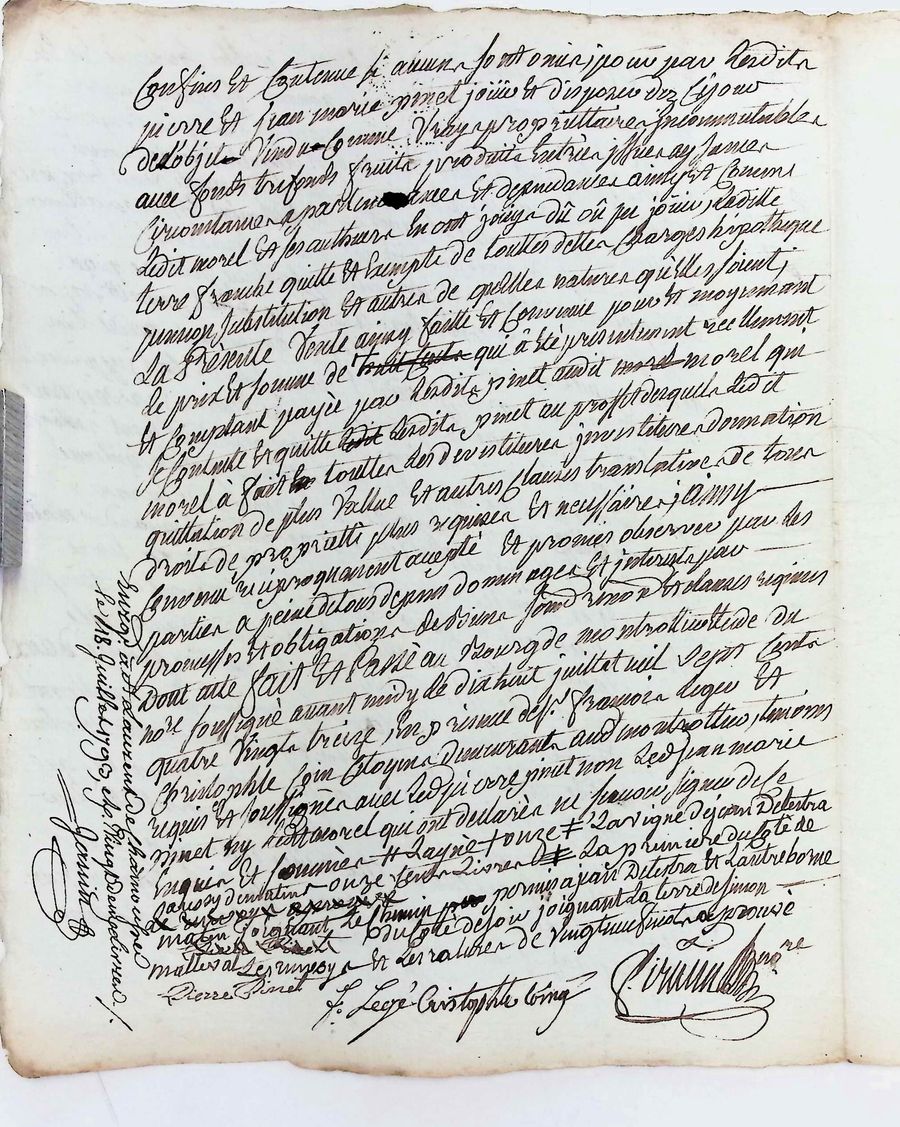 Confins et Contenue si aucuns sont omis pour par lesdits
pierre et jean marie pinet jouir et disposer dez cejour
de l'objet vendu Comme vrays propriettaires Incommutables
avec fonds trefonds fruits produits entrées issues aysances
Circonstances apartenances et dependances ainsy et Comme
ledit morel et ses autheurs en ont jouÿs dû oû pu jouir, laditte
terre franche quitte et Exempte de touttes dettes Charges hipotheque
pension, substitution et autres de quelles natures qu'elles soient;
La Presente Vente ainsy faitte et Convenue pour et moyennant
le prix et somme de qui â été présentement reellement
et Comptant payée par lesdits pinet audit morel qui
s'en Contente et quitte lesdits pinet au proffit desquels ledit
morel à fait touttes les devestitures investitures donnation
quittation de plus vallue et autres Clauses translatives de tous
droits de proprietté plus requises et necessaires; ainsy
Convenu reciproquement accepté et promis observer par les
parties a peine de tous depens dommages et interests par
promesses et obligations de biens soumi renon et clauses requises
Dont acte fait et Passé au Bourg de montrottier etude du
nore soussigné avant midy le dixhuit juillet mil sept Cents
quatre vingts treize, En présence de sr. francois leger et
Christophle Coin Citoyens demeurants aud montrottier, temoins
requis et soussignés avec led pierre pinet non Led jean marie
pinet ny led morel qui ont declarés ne sçavoir signer de ce
Enquis et sommés # Layné + onze + La vigne de jean Delestra
onze Cents Livres # La premiere du Coté de
matin joignant le Chemin permis a jean Delestra et L'autre borne
du Coté de soir joignant La terre de simon
malleval Les renvoys et Les ratures de vingt neuf mots aprouvé
Pierre Pinet
Pierre Pinet
f. Legé Cristophle Coing
nore
Enregé. à St. Laurent de Chamousset
le 18. Juillet 1793,